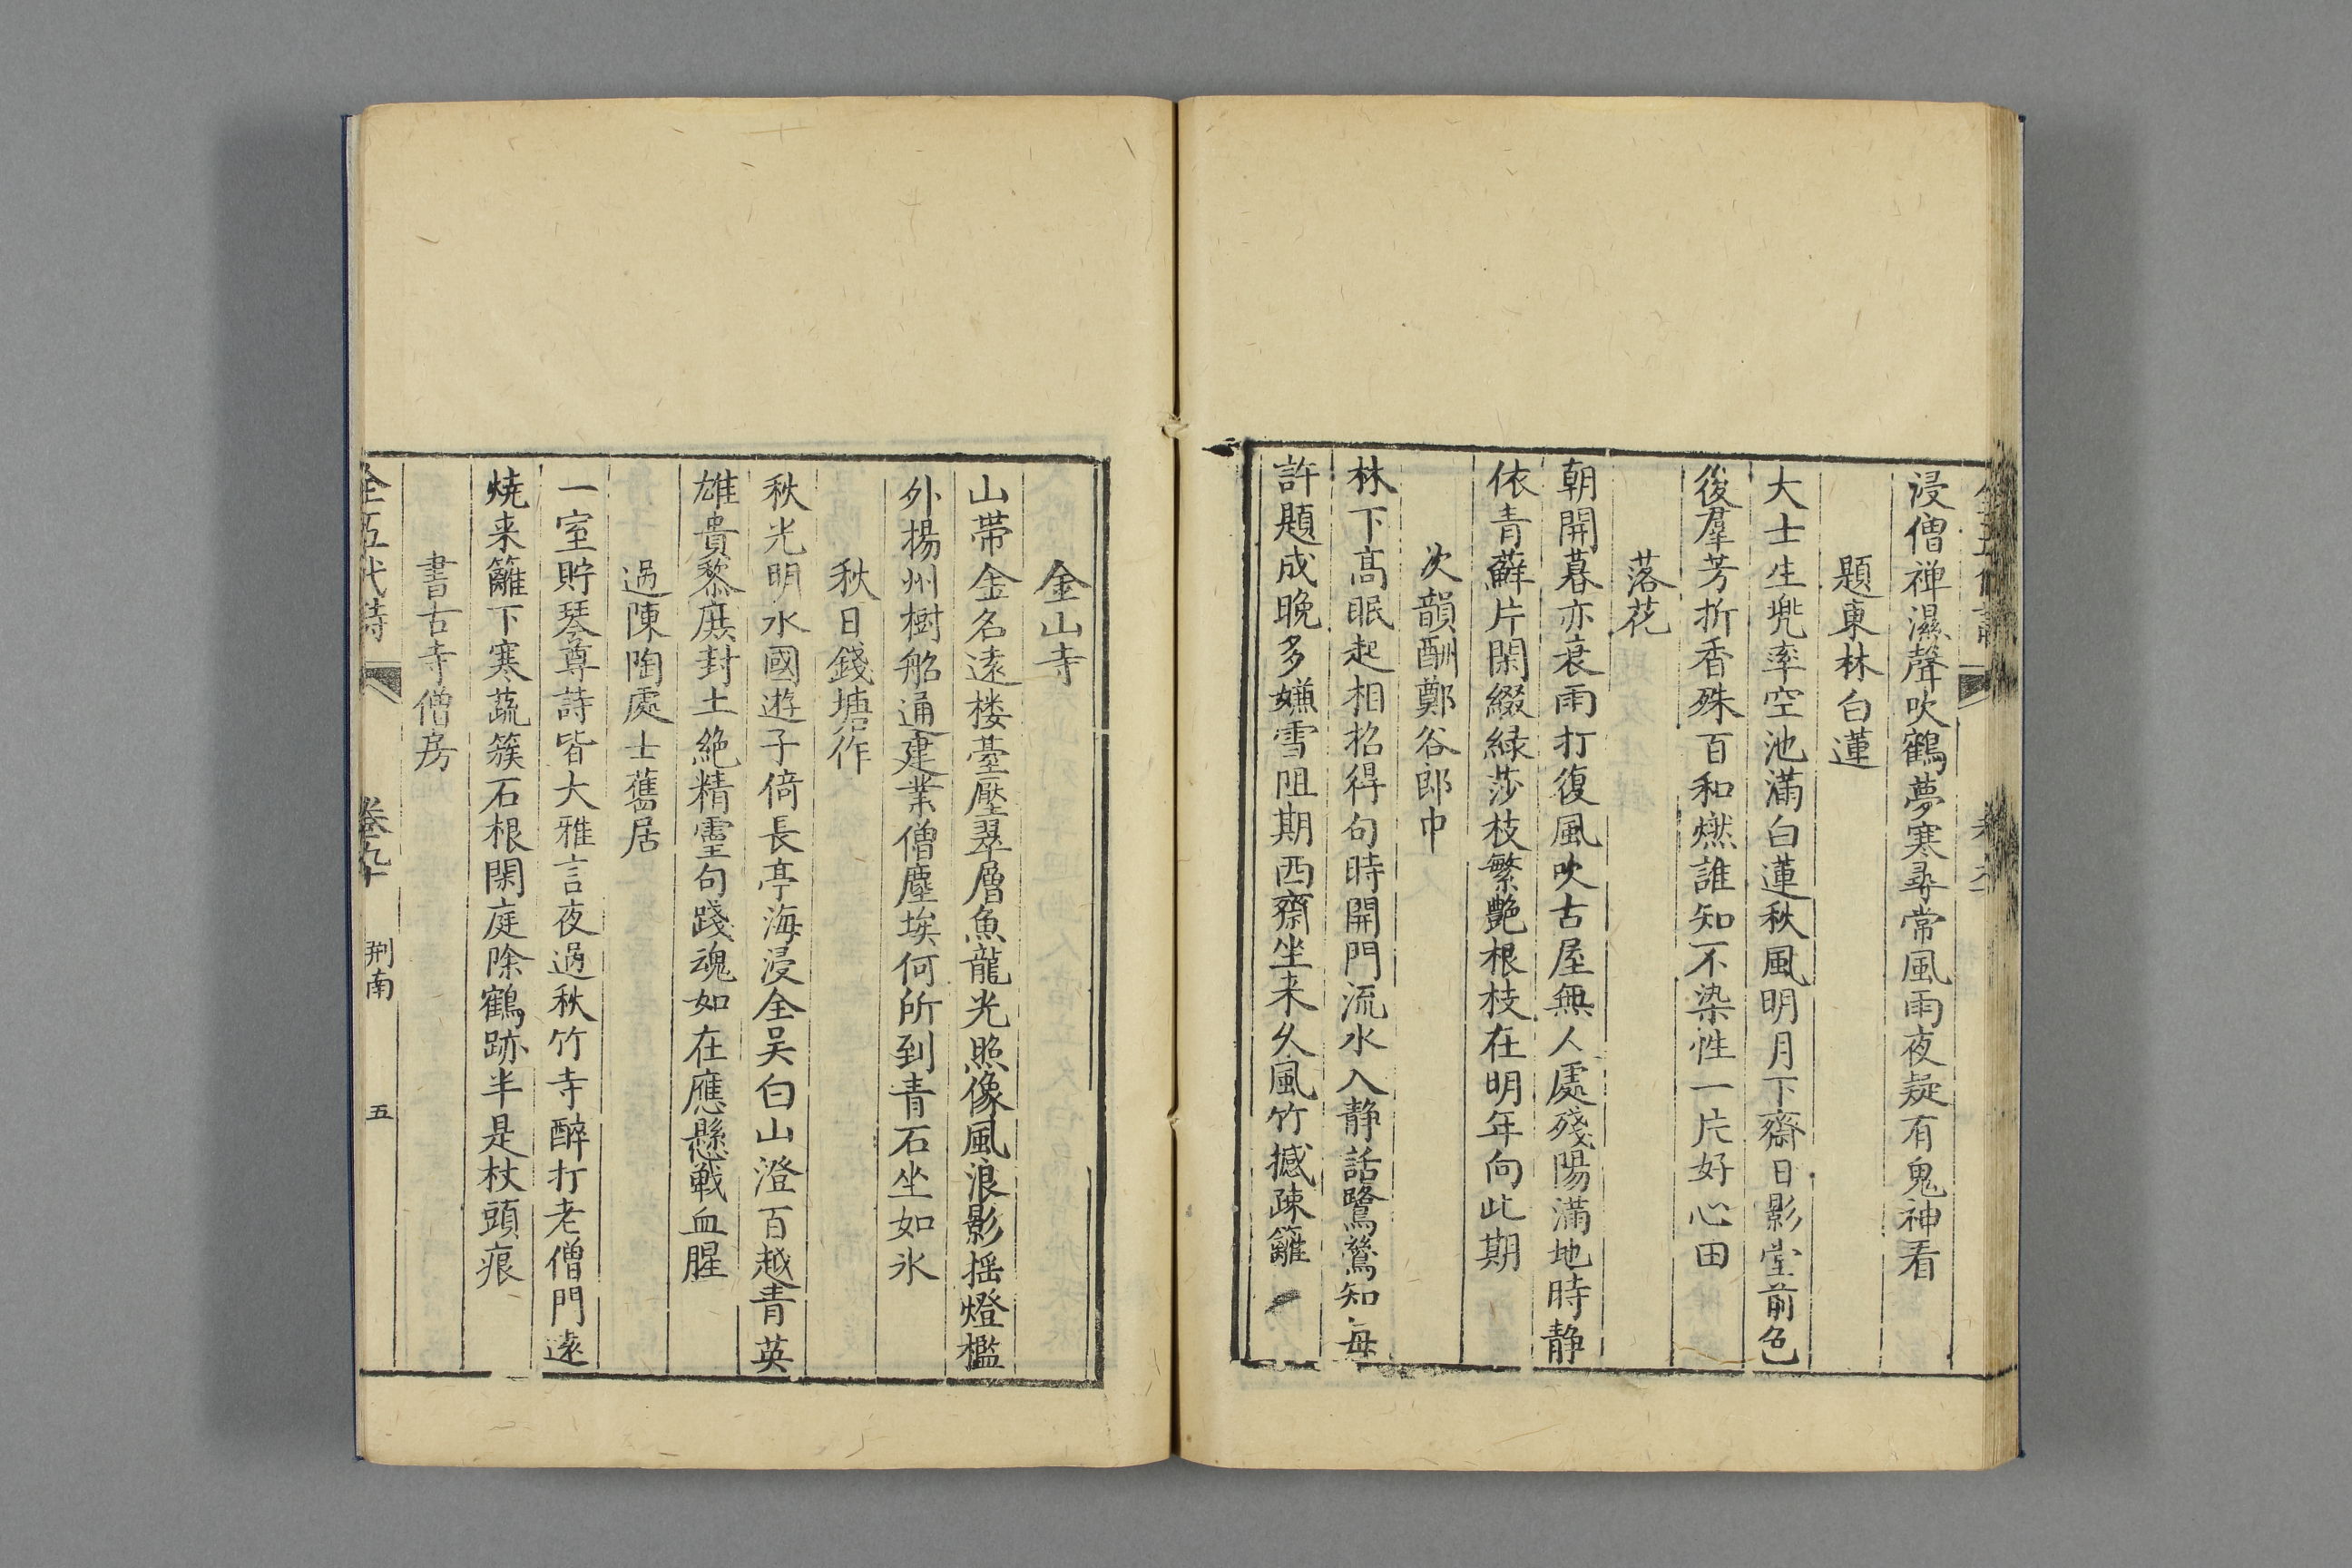 浸僧禅濕聲吹鶴夢寒尋常風雨夜疑有鬼神看
題東林白蓮
大士生兜率空池滿白蓮秋風明月下齋日影堂前色
後羣芳折香殊百和燃誰知不染性一片好心田
落花
朝開暮亦衰雨打復風吹古屋無人處殘陽滿地時静
依青蘚片閑綴緑莎枝繁艶根枝在明年向此期
次韻酬鄭谷郎中
林下高眠起相招得句時開門流水入静話鷺鷥知每
許題成晚多嫌雪阻期西齋坐来久風竹撼疎籬
金山寺
山帶金名遠楼臺壓翠層魚龍光照像風浪影摇燈檻
外揚州樹船通建業僧塵埃何所到青石坐如氷
秋日錢塘作
秋光明水國遊子倚長亭海浸全吴白山澄百越青英
雄貴黎庶封土絶精靈句踐魂如在應懸戰血腥
過陳陶處士舊居
一室貯琴尊詩皆大雅言夜過秋竹寺醉打老僧門遠
燒来籬下寒蔬簇石根閑庭除鶴跡半是杖頭痕
書古寺僧房
全五代詩 卷九十 荆南 五